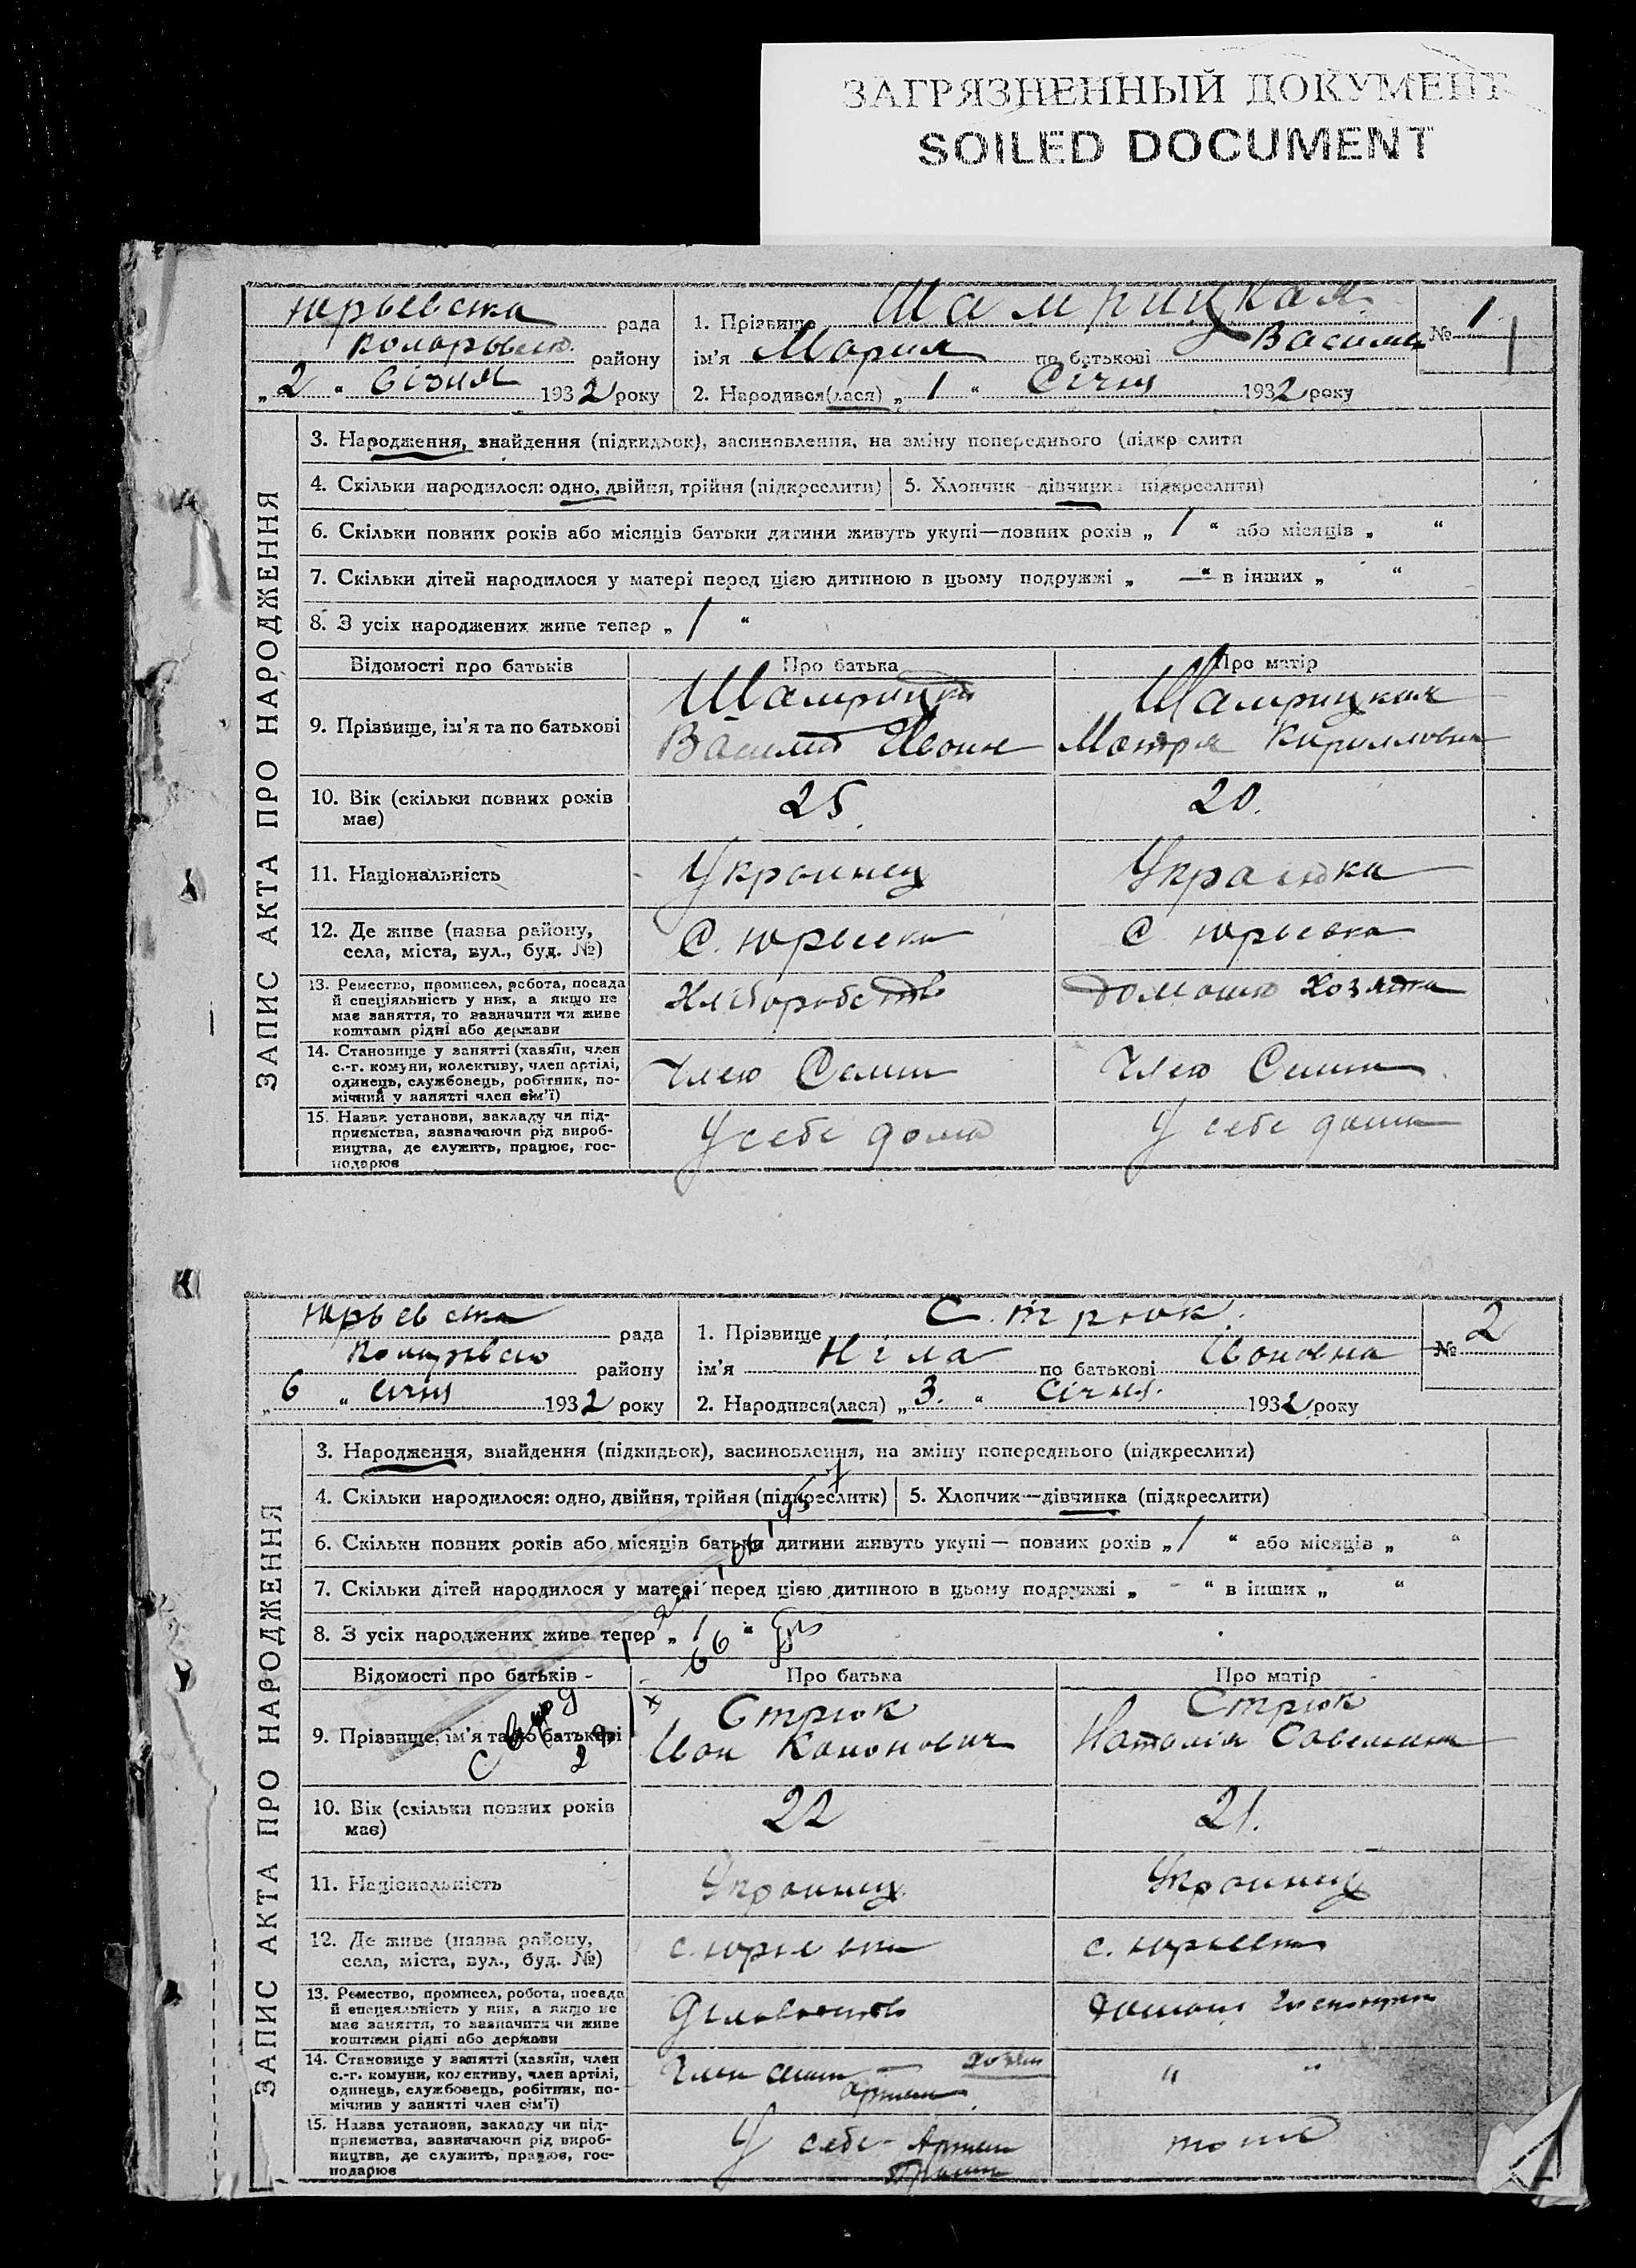 ЗАГРЯЗНЕННЫЙ ДОКУМЕНТ
SOILED DOCUMENT
Юрьевска рада
району
„2“ Січня 1932 року
1. Прізвище Шамрицкая
ім'я Мария по батькові Васильев
2. Народився(лася) „1“ Січня 1932 року
№ 1
ЗАПИС АКТА ПРО НАРОДЖЕННЯ
3. Народження, знайдення (підкидьок), засиновлення, на зміну попереднього (підкр слити
4. Скільки народилося: одно, двійня, трійня (підкреслити)
5. Хлопчик—дівчинка (підкреслити)
6. Скільки повних років або місяців батьки дитини живуть укупі—повних років „1“ або місяців „ “
7. Скільки дітей народилося у матері перед цією дитиною в цьому подружжі „—“ в інших „ “
8. З усіх народжених живе тепер „1“
Відомості про батьків
Про батька
Про матір
9. Прізвище, ім'я та по батькові
Шамрицкий
Василий Иван
Шамрицкая
Мотря Кирилловна
10. Вік (скільки повних років
має)
25
20.
11. Національність
Украинец
Украинка
12. Де живе (назва району,
села, міста, вул., буд. №)
С. Юрьевка
С. Юрьевка
13. Ремество, промисел, робота, посада
й спеціяльність у них, а якщо не
має заняття, то зазначити чи живе
коштами рідні або держави
Хліборобство
Домашня Хозяйка
14. Становище у занятті (хазяїн, член
с.-г. комуни, колективу, член артілі,
одинець, службовець, робітник, по-
мічний у занятті член сім'ї)
Член Семьи
Член Семьи
15. Назва установи, закладу чи під-
приємства, зазначаючи рід вироб-
ництва, де служить, працює, гос-
подарює
У себе дома
У себе дома
Юрьевска рада
району
„6“ січня 1932 року
1. Прізвище Стрюк.
ім'я Ніла по батькові Ивановна
2. Народився(лася) „3.“ Січня. 1932 року
№ 2
ЗАПИС АКТА ПРО НАРОДЖЕННЯ
3. Народження, знайдення (підкидьок), засиновлення, на зміну попереднього (підкреслити)
4. Скільки народилося: одно, двійня, трійня (підкреслити)
5. Хлопчик—дівчинка (підкреслити)
6. Скільки повних років або місяців батьки дитини живуть укупі — повних років „1“ або місяців „ “
7. Скільки дітей народилося у матері перед цією дитиною в цьому подружжі „-“ в інших „ “
8. З усіх народжених живе тепер „1“
Відомості про батьків
Про батька
Про матір
9. Прізвище, ім'я та по батькові
Стрюк
Иван Кононович
Стрюк
Наталія
10. Вік (скільки повних років
має)
22
21.
11. Національність
Украинец
Украинец
12. Де живе (назва району,
села, міста, вул., буд. №)
с. Юрьевка
с. Юрьевка
13. Ремество, промисел, робота, посада
й спеціяльність у них, а якщо не
має заняття, то зазначити чи живе
коштами рідні або держави
14. Становище у занятті (хазяїн, член
с.-г. комуни, колективу, член артілі,
одинець, службовець, робітник, по-
мічник у занятті член сім'ї)
Член
" "
15. Назва установи, закладу чи під-
приємства, зазначаючи рід вироб-
ництва, де служить, працює, гос-
подарює
У себе